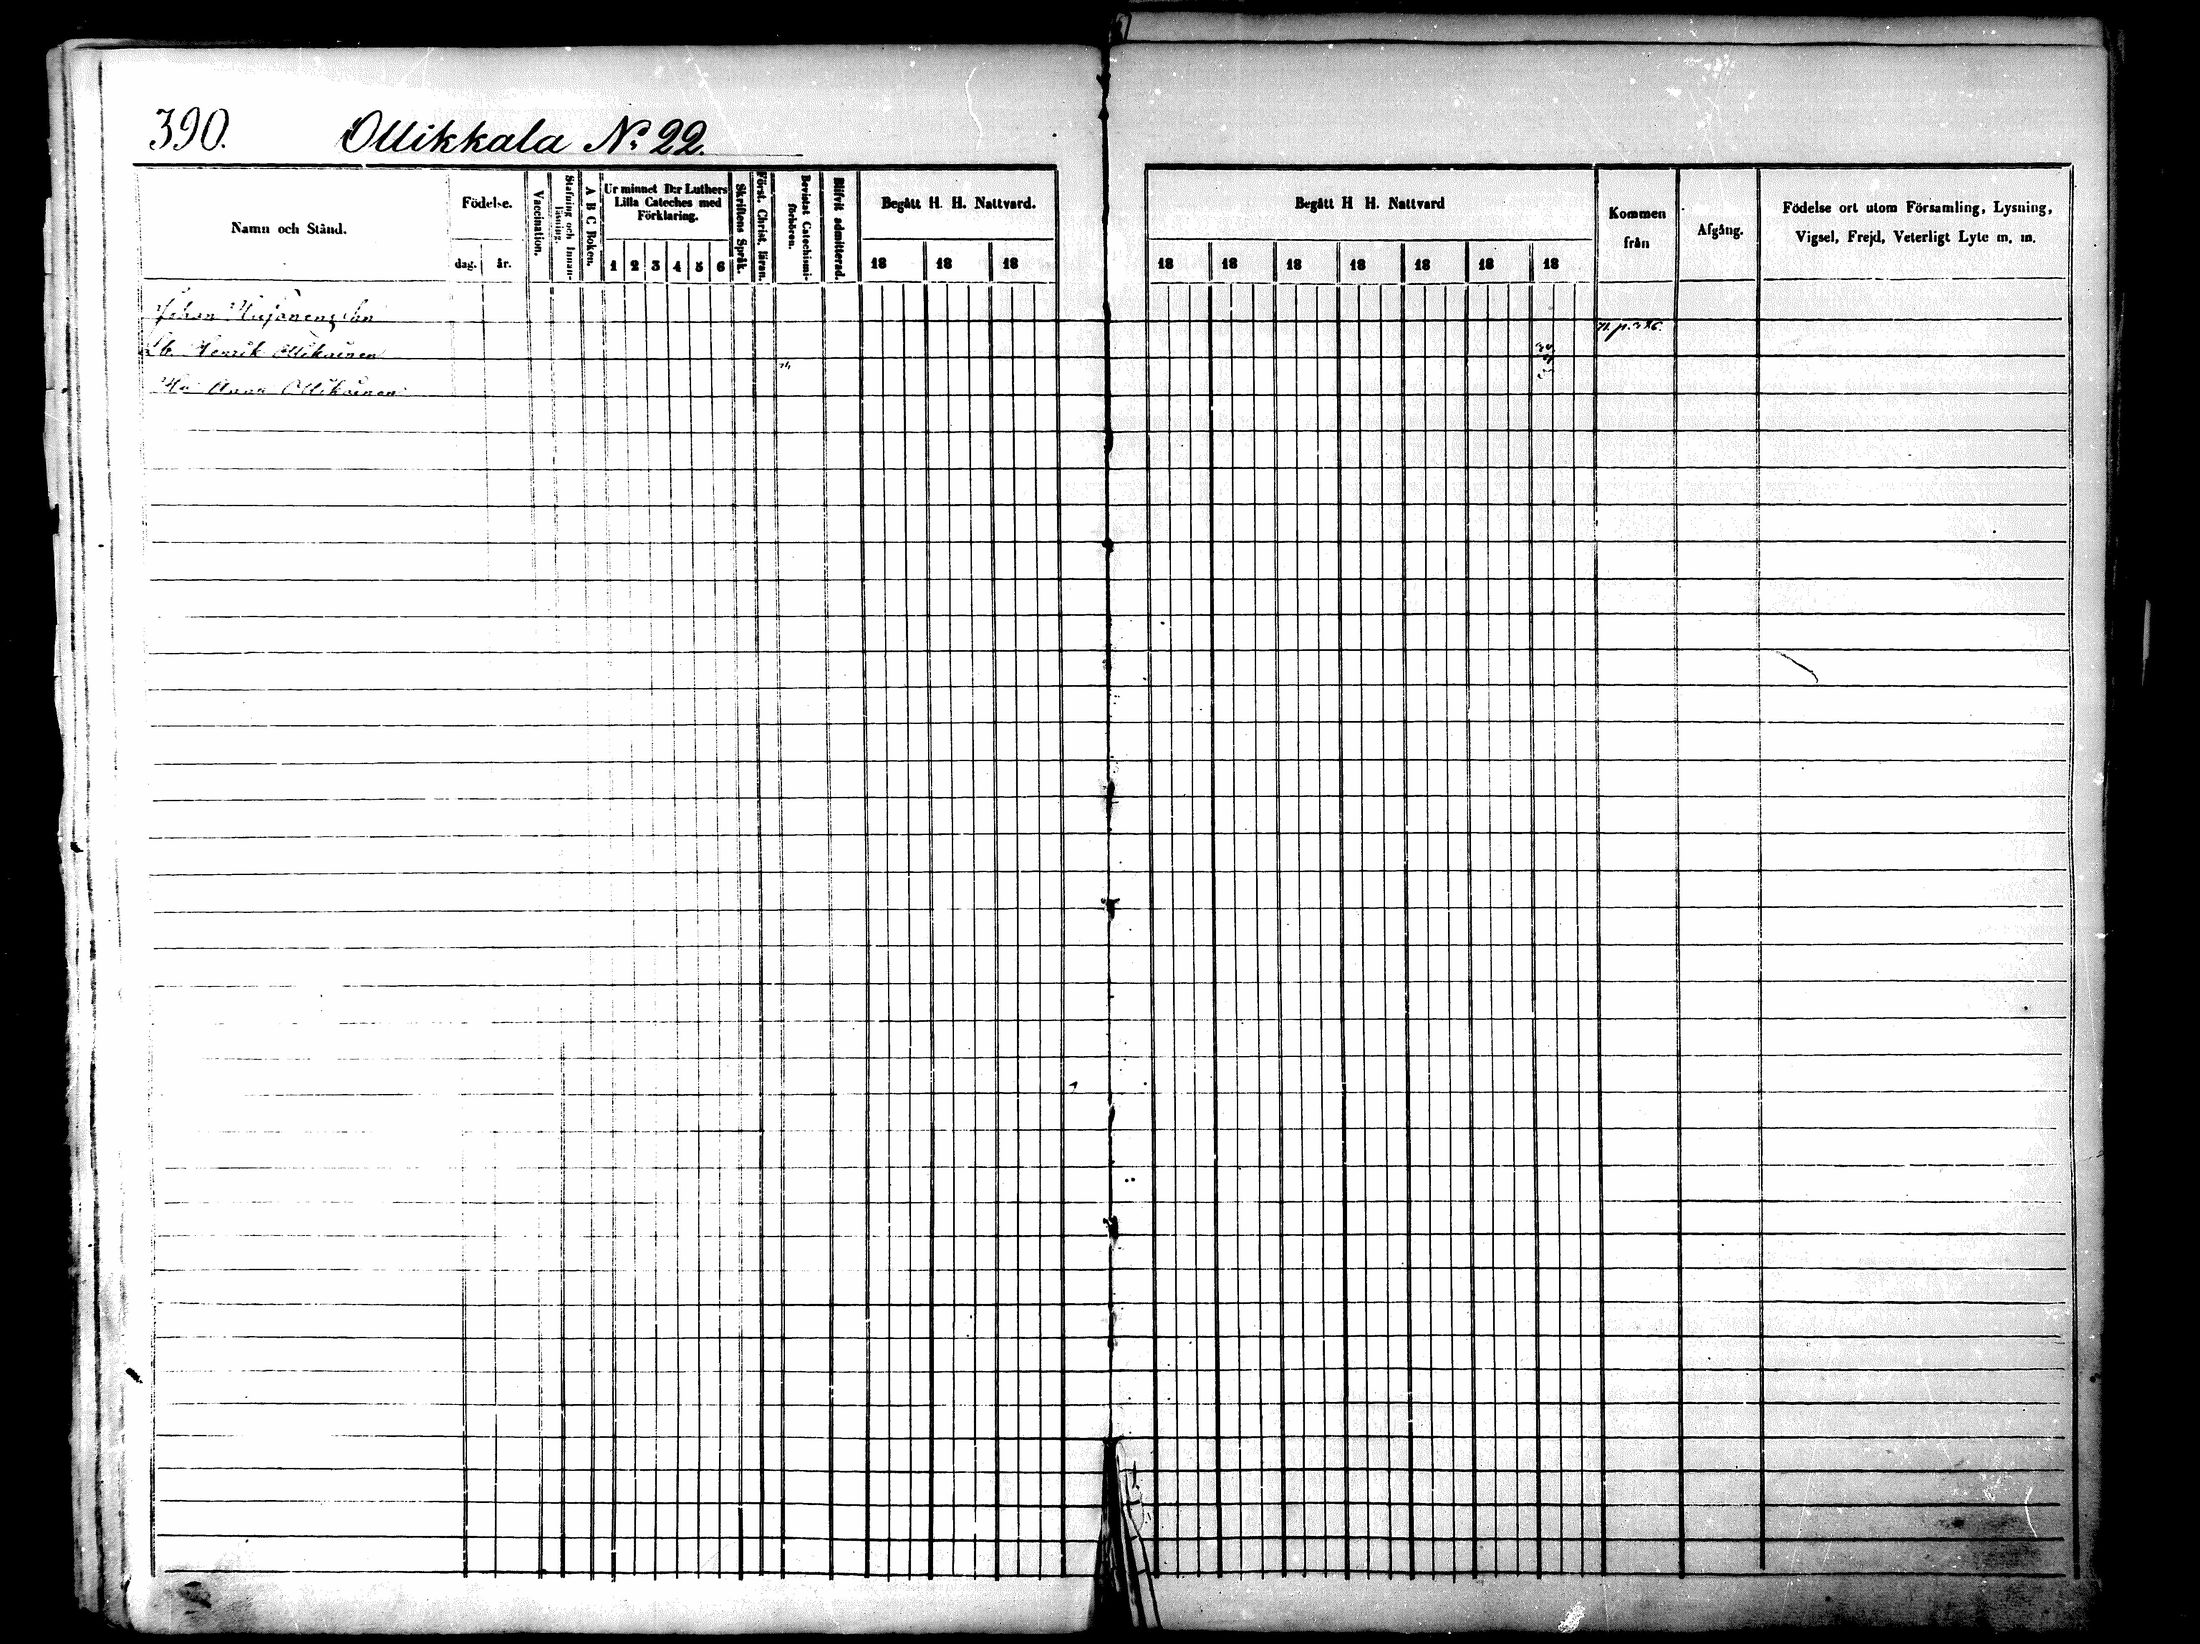 390. Ollikkala No 22.
Namn och Stånd.
Födelse.
dag. år.
Vaccination.
Stafning och Innan-
läsning.
A B C Boken.
Ur minnet D:r Luthers
Lilla Cateches med
Förklaring.
1 2 3 4 5 6
Skriftens Språk.
Först. Christ. läran.
Bevistat Catechismi-
förhören.
Blifvit admitterad.
Begått H. H. Nattvard.
18 18 18
Begått H H. Nattvard
18 18 18 18 18 18 18
Kommen
från
Afgång.
Födelse ort utom Församling, Lysning,
Vigsel, Frejd, Veterligt Lyte m. m.
Johan
Henrik Ollikainen
Anna Ollikainen